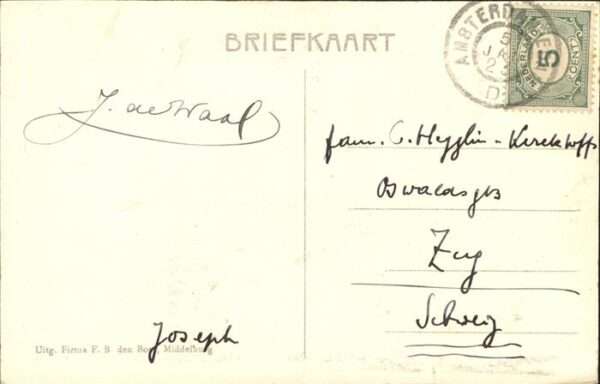 BRIEFKAART
AMSTERDAM
5
JAN
D
NEDERLAND
5
CENT
J. de Waal
fam. C. Hegglin-Kerckhoffs
Oswaldsgs
Zug
Schweiz
Joseph
Uitg. Firma F. B. den Boer, Middelburg